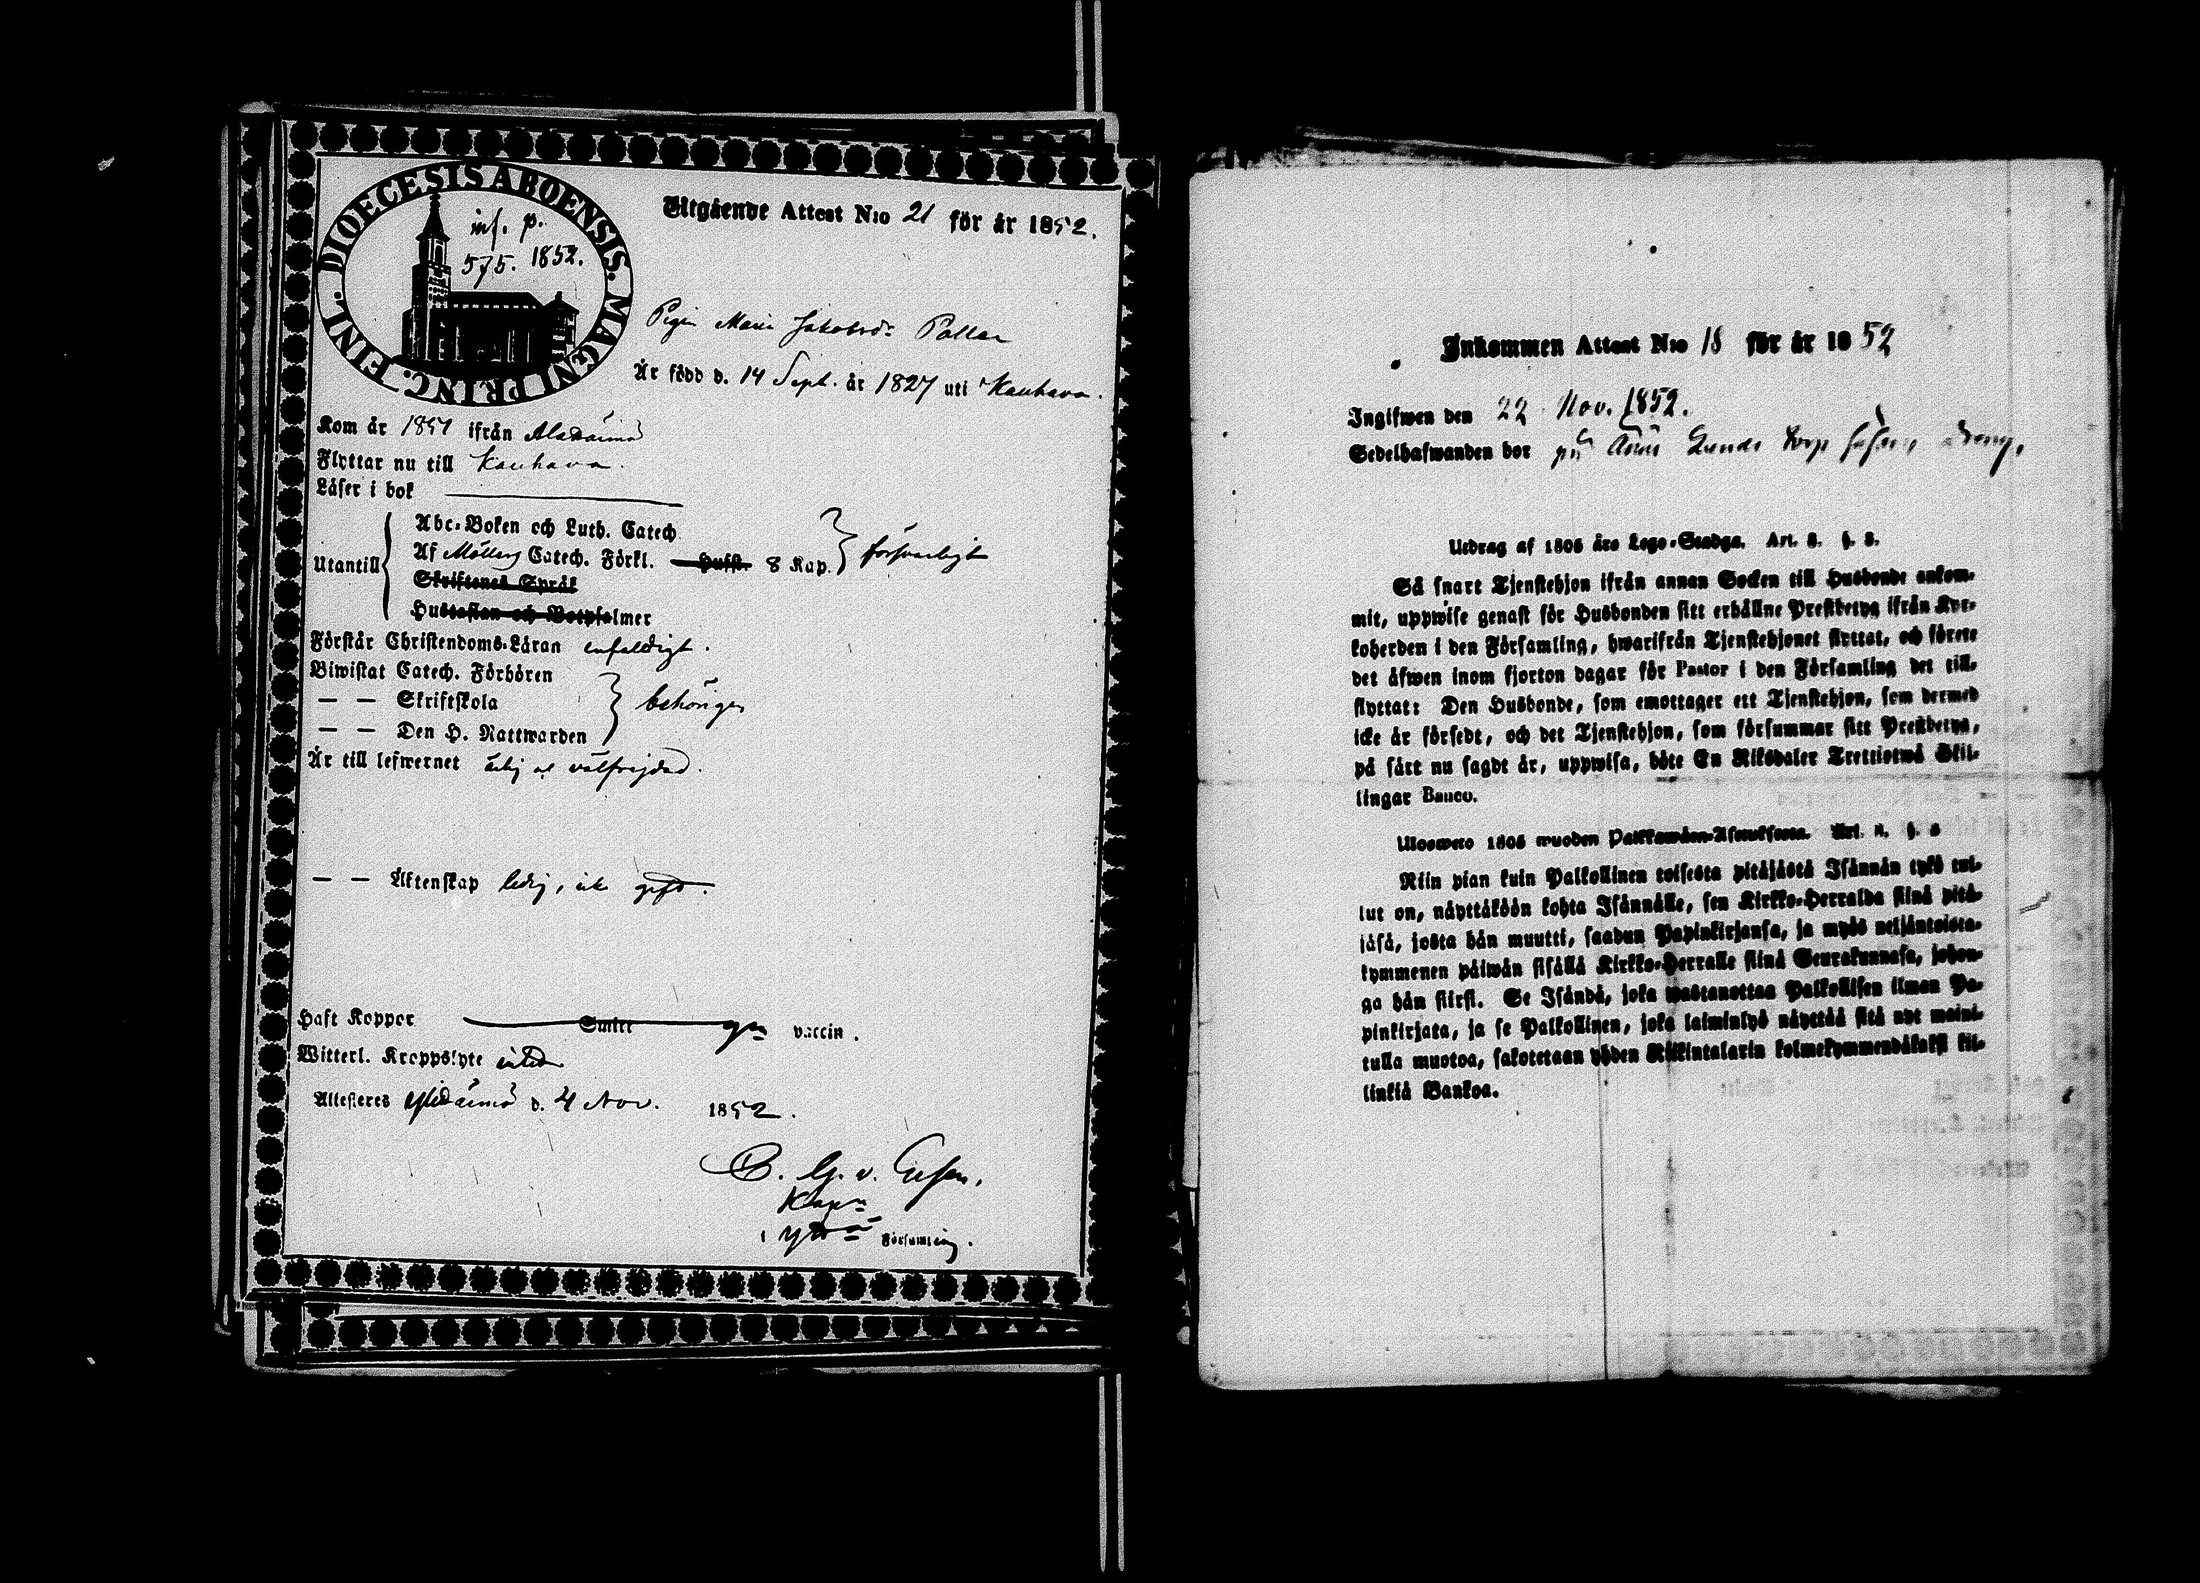 DIOECESIS ABOENSIS. MAGNI PRINC. FINL.
inf. p.
575. 1852.
Utgående Attest N:o 21 för år 1852.
Pigan Maria Jakobsdr Pollar
Är född d. 14 Sept. år 1827 uti Kauhava.
Kom år 1851 ifrån Alahärmä
Flyttar nu till Kauhava.
Läser i bok
Utantill
Abc-Boken och Luth. Catech
Af Möllers Catech. Förkl. Hufst. 8 Kap. försvarligt
Skriftenes Språk
Hustaflan och Botpsalmer
Förstår Christendoms-Läran enfaldigt.
Biwistat Catech. Förhören
— — Skriftskola behörigen
— — Den H. Nattwarden
Är till lefwernet ärlig o välfrejdad.
— — Äktenskap ledig, icke gift.
Haft Koppor Smitt gm vaccin.
Witterl. Kroppslyte intet
Attesteres Ylihärmä d. 4 Nov. 1852.
Kapn
i Församling.
Inkommen Attest N:o 18 för år 1852
Ingifwen den 22 Nov. 1852.
Sedelhafwanden bor på
Utdrag af 1805 års Lego-Stadga. Art. 8. §. 8.
Så snart Tjenstehjon ifrån annan Socken till Husbonde ankom-
mit, uppwise genast för Husbonden sitt erhållne Prestbetyg ifrån Kyr-
koherden i den Församling, hwarifrån Tjenstehjonet flyttat, och förete
det äfwen inom fjorton dagar för Pastor i den Församling det till-
flyttat: Den Husbonde, som emottager ett Tjenstehjon, som dermed
icke är försedt, och det Tjenstehjon, som försummar sitt Prestbetyg,
på sätt nu sagdt är, uppwisa, böte En Riksdaler Trettiotwå Skil-
lingar Banco.
Ulosweto 1805 wuoden Palkkawäen-Asetuksesta. Art. 8. §. 8
Niin pian kuin Palkollinen toisesta pitäjästä Isännän tykö tul-
lut on, näyttäköön kohta Isännälle, sen Kirkko-Herralda siinä pitä-
jäsä, josta hän muutti, saadun Papinkirjansa, ja myös neljäntoista-
kymmenen päiwän sisällä Kirkko-Herralle siinä Seurakunnasa, johon-
ga hän siirsi. Se Isändä, joka wastanottaa Palkollisen ilman Pa-
pinkirjata, ja se Palkollinen, joka laiminlyö näyttää sitä nyt maini-
tulla muotoa, sakotetaan yhden Riikintalarin kolmekymmendäkaksi kil-
linkiä Bankoa.